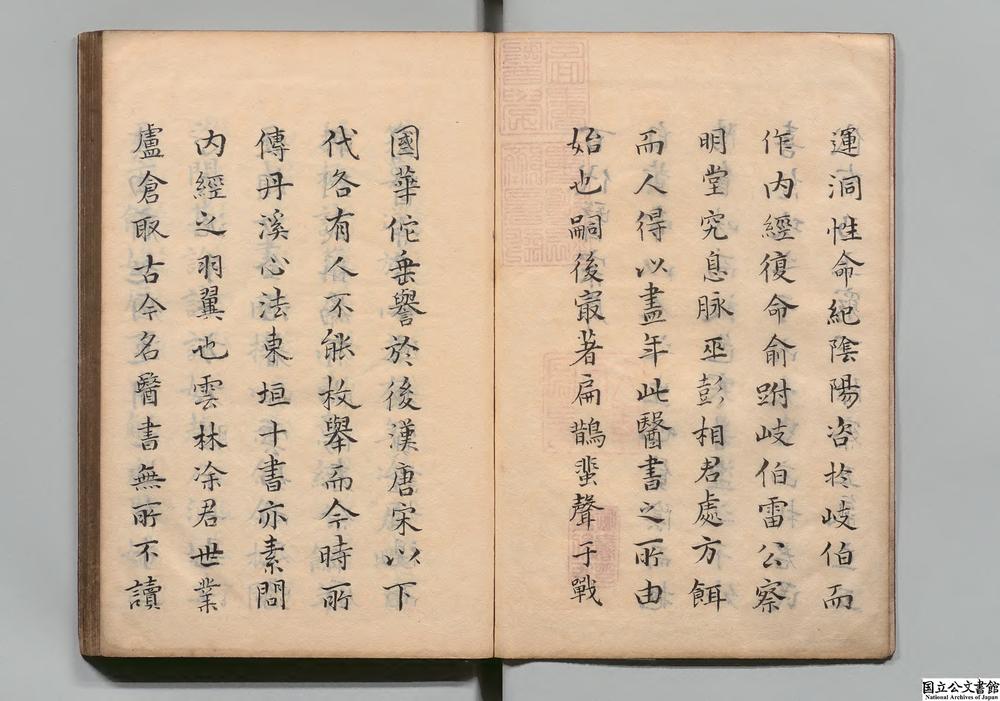 運洞性命紀陰陽咨扵岐伯而
作内經復命俞跗岐伯雷公察
明堂究息脉巫彭桐君處方餌
而人得以盡年此醫書之所由
始也嗣後㝡著扁鵲蜚聲于戰
國華佗垂譽於後漢唐宋以下
代各有人不能枚舉而今時所
傳丹溪心法東垣十書亦素問
内經之羽翼也雲林涂君世業
盧倉取古今名醫書無所不讀
国立公文書館
National Archives of Japan